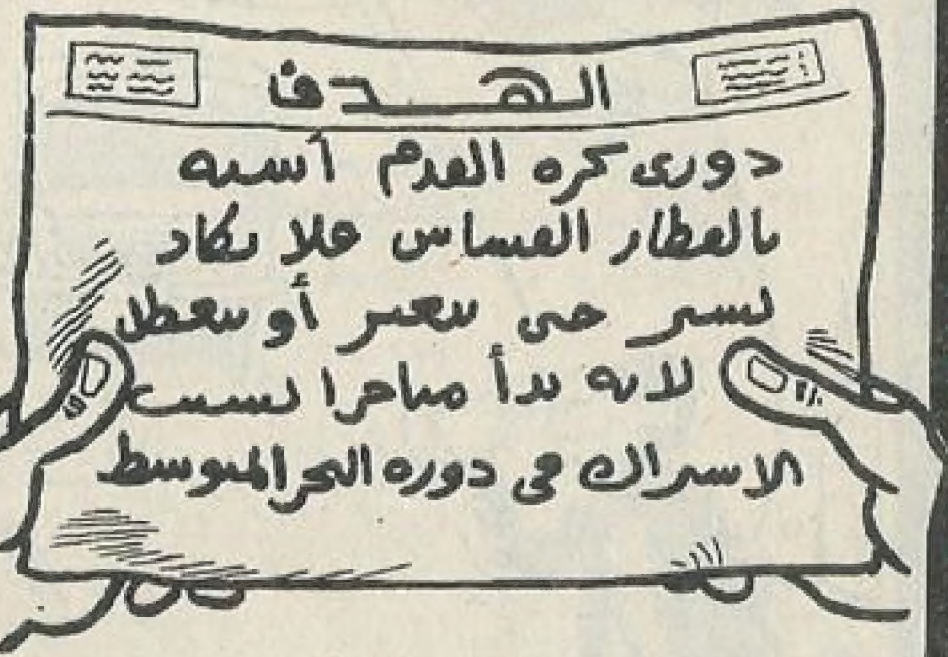 الهدف
دورى كره القدم أشبه
بالقطار القشاش فلا يكاد
يسير حتى يتعثر أو يتعطل
لانه بدأ متاخرا بسبب
الاشتراك فى دوره البحر المتوسط